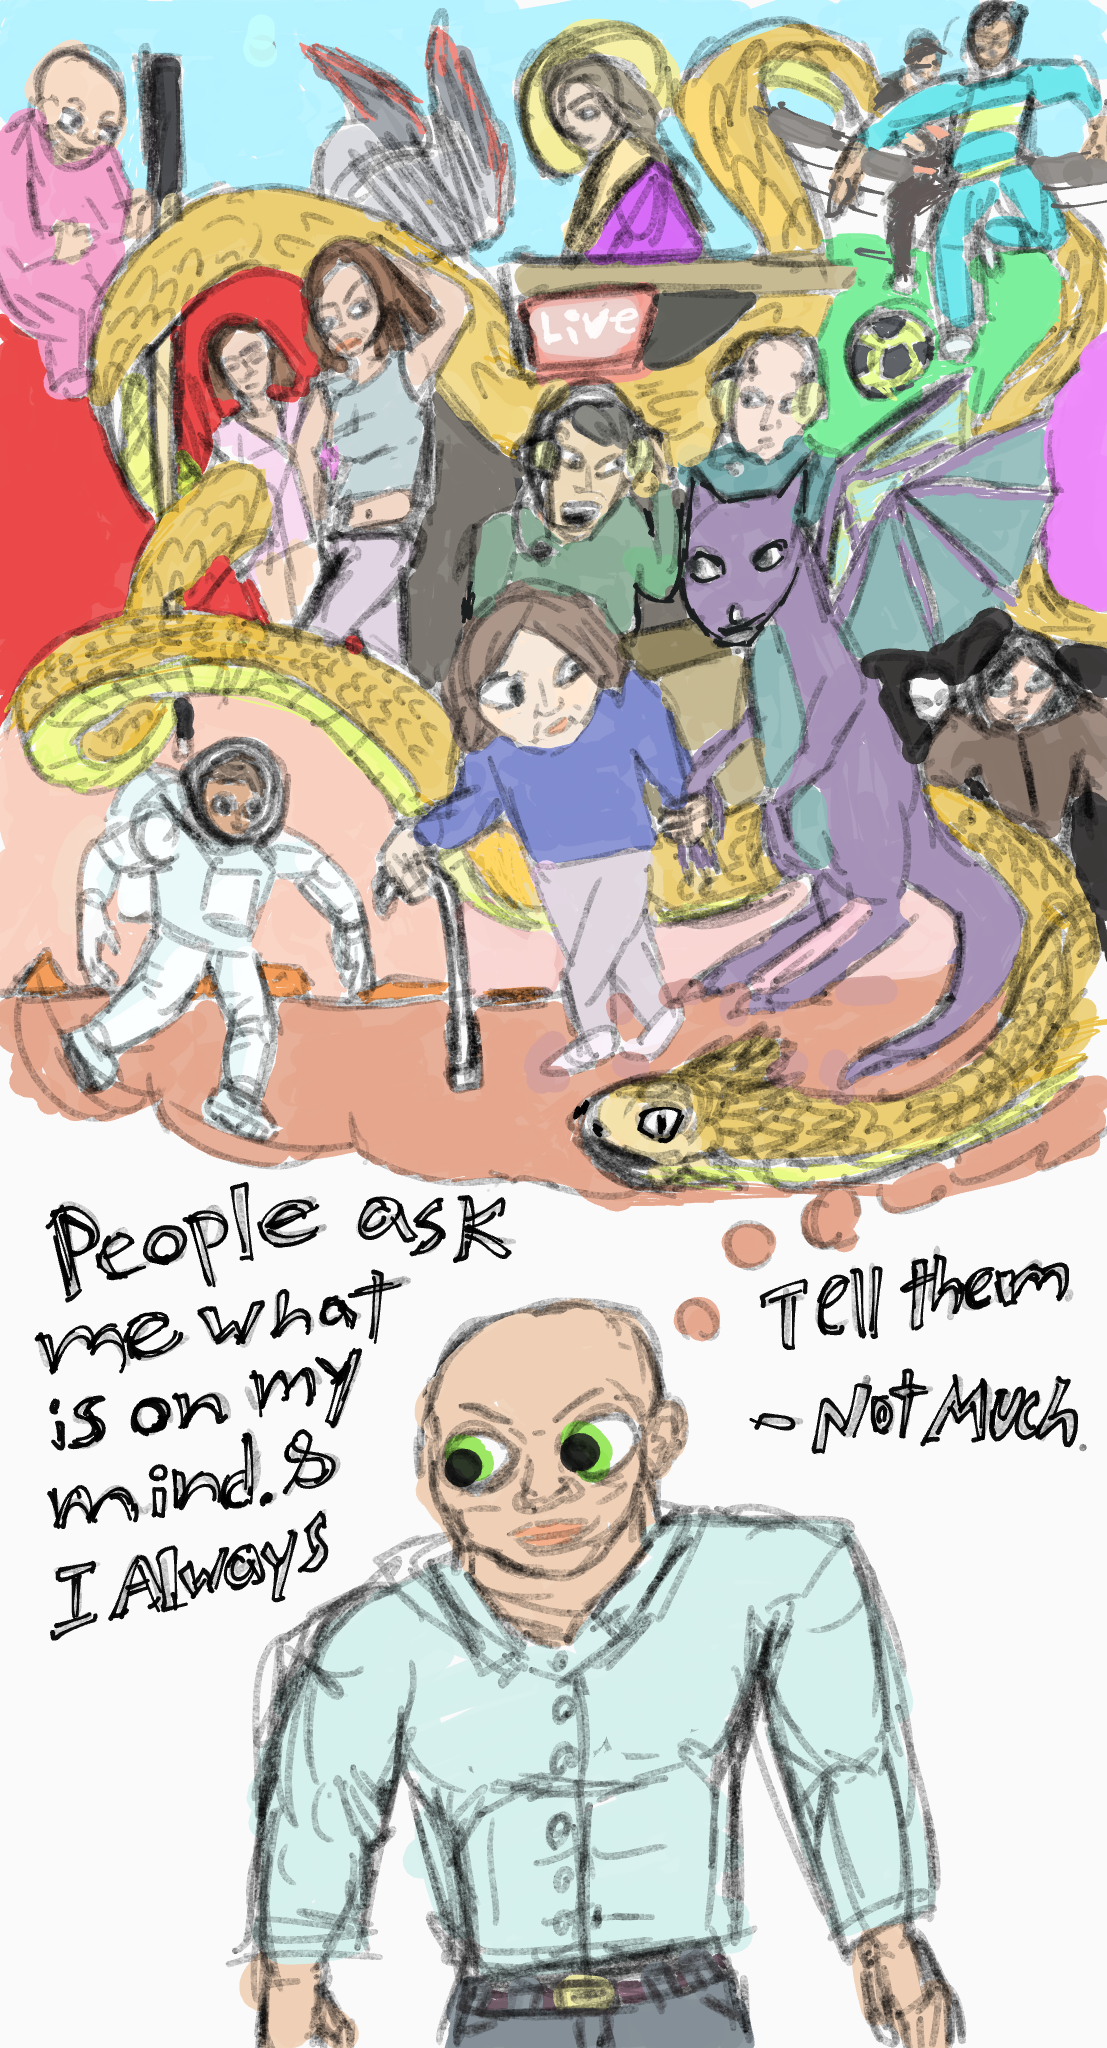 Live
People ask
me what
is on my
mind. &
I Always
Tell them
- Not Much.